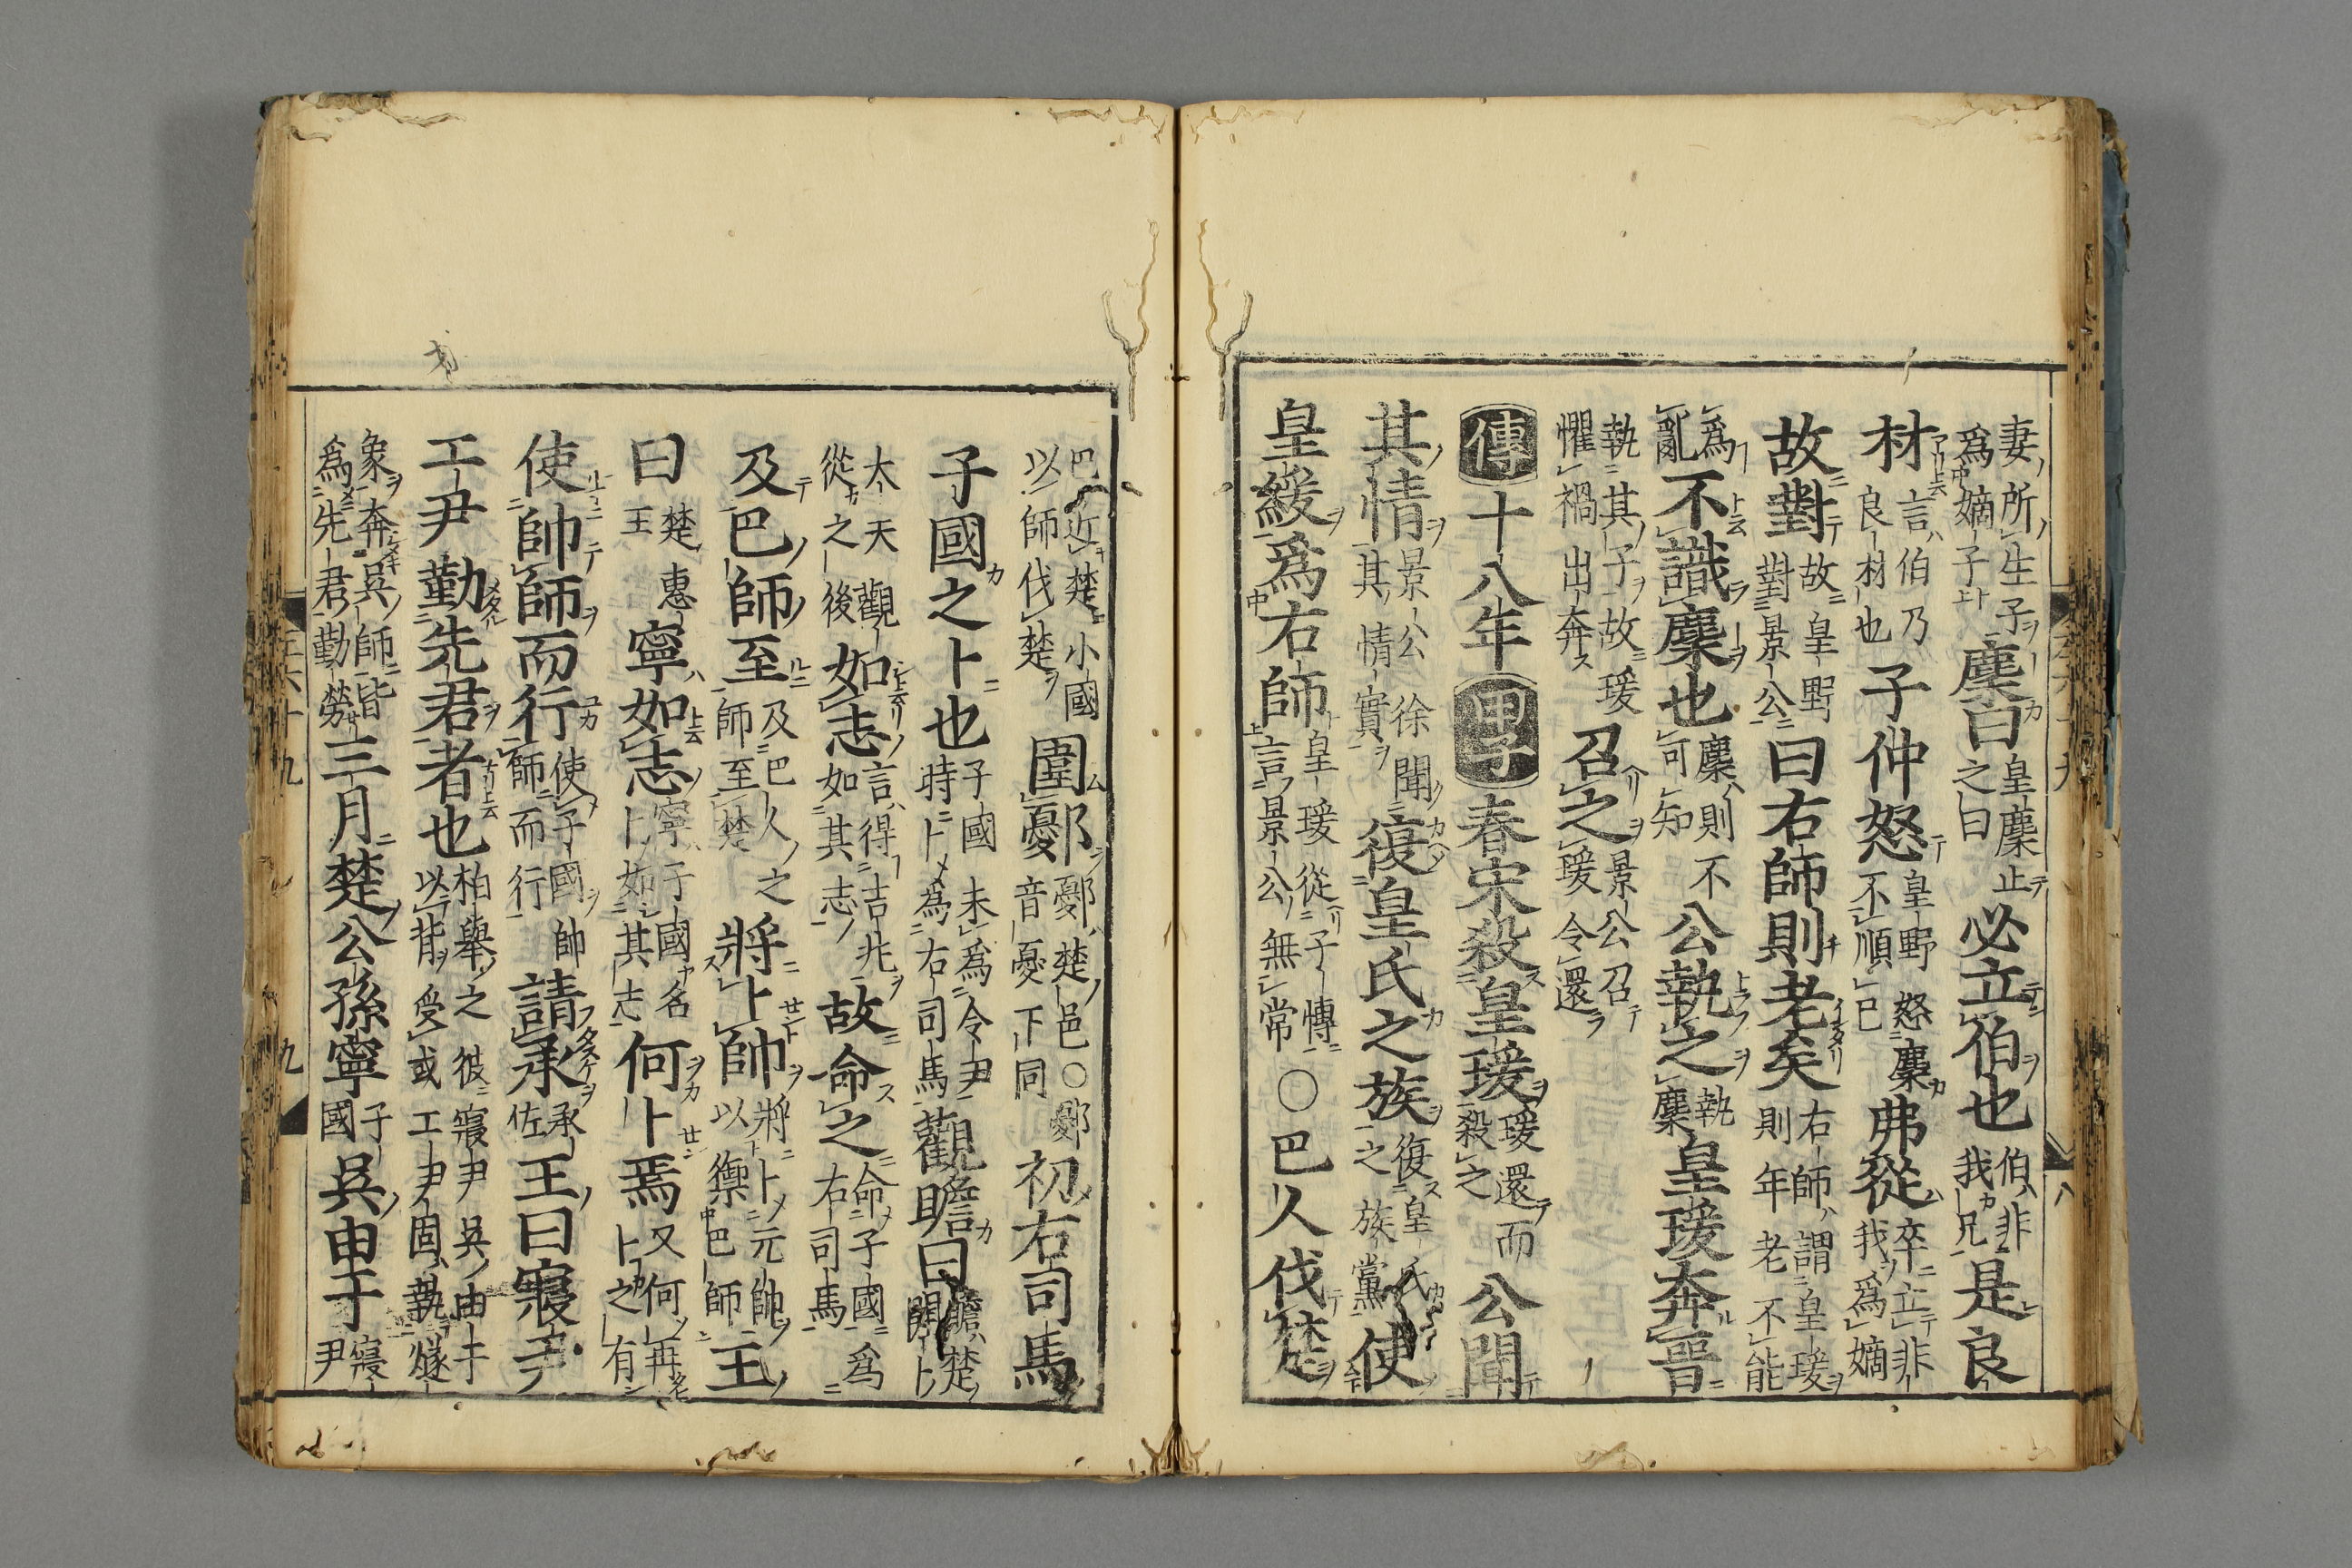 妻所生子爲嫡子麇曰皇麇止之曰必立伯也伯非我兄是良
材言伯乃良材也子仲怒皇野怒不順已麇弗從卒立非我爲嫡
故對故皇野對景公曰右師則老矣右師謂皇瑗則年老不能
爲亂不識麇也麇則不可知公執之執麇皇瑗奔晉
執其子故瑗懼禍出奔召之景公召瑗令還
傳十八年甲子春宋殺皇瑗瑗還而殺之公聞
其情景公徐聞其情實復皇氏之族復皇氏之族黨使
皇緩爲右師皇瑗從子傳言景公無常○巴人伐楚
巴近楚小國以師伐楚圍鄾鄾楚邑○鄾音憂下同初右司馬
子國之卜也子國未爲令尹時卜爲右司馬觀瞻曰瞻楚開卜
太天觀從之後如志言得吉兆如其志故命之命子國爲右司馬
及巴師至及巴人之師至楚將卜帥將卜元帥以禦巴師王
曰楚惠王寧如志寧子國名卜如其志何卜焉又何再卜之有
使帥師而行使子國帥師而行請承承佐王曰寢尹
工尹勤先君者也柏舉之役寢尹吳由于以背受戈工尹固執燧
象奔吳師皆爲先君勤勞三月楚公孫寧子國吳由于寢尹